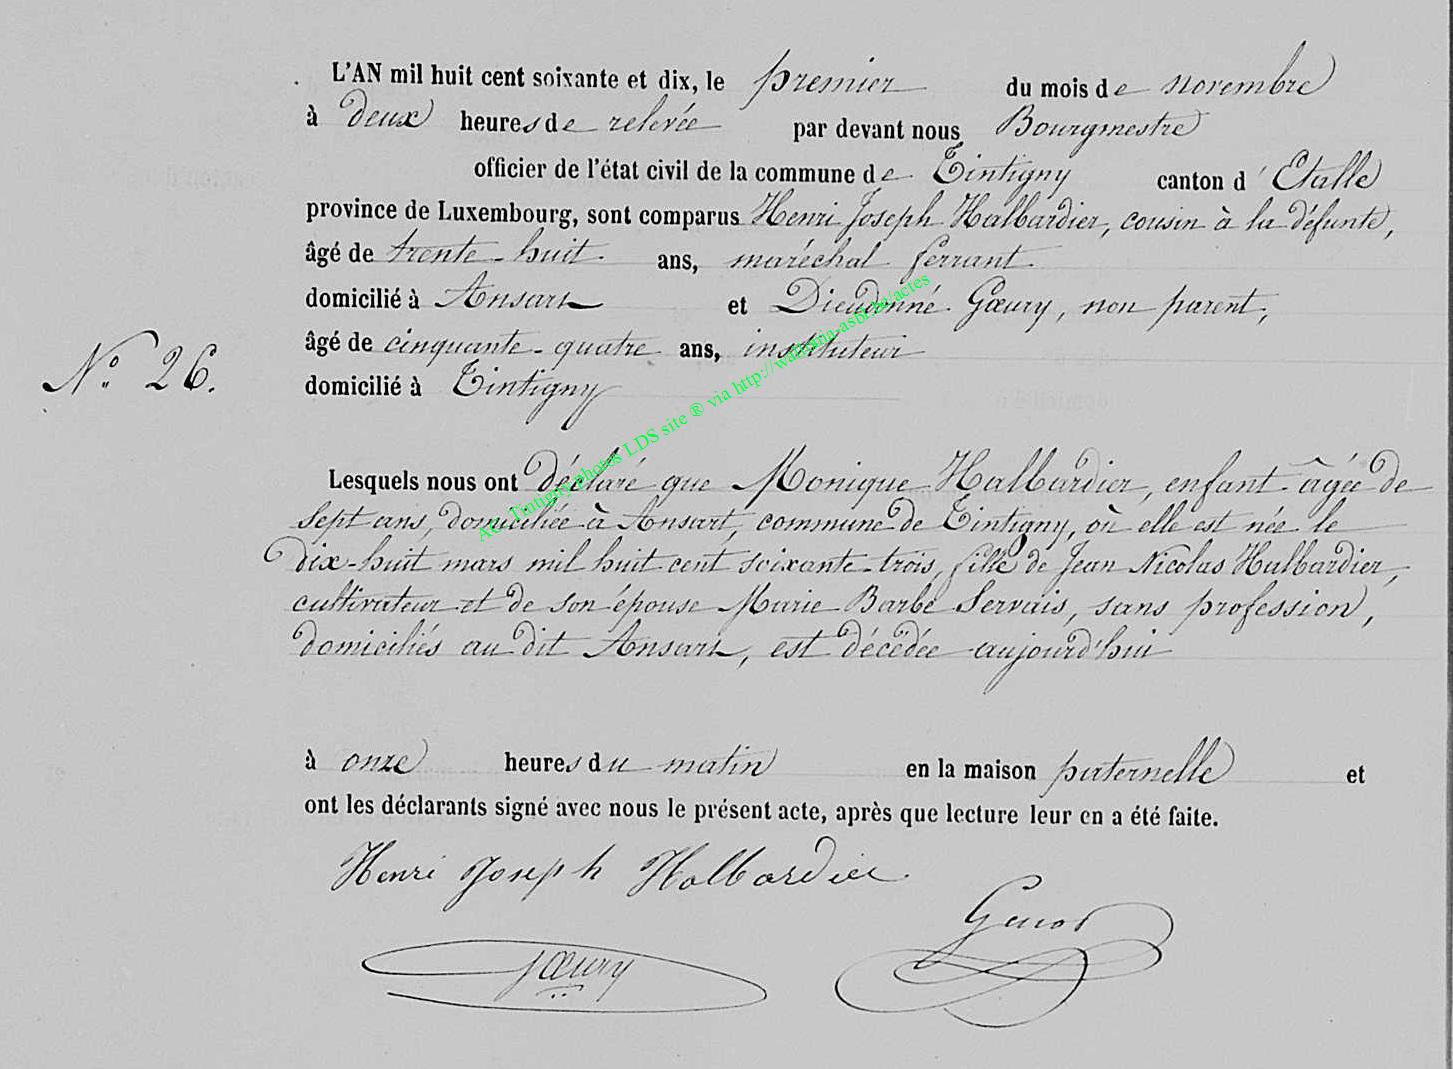 L'AN mil huit cent soixante et dix, le premier du mois de novembre
à deux heures de relevée par devant nous Bourgmestre
officier de l'état civil de la commune de Tintigny canton d'Etalle
province de Luxembourg, sont comparus Henri Joseph Halbardier, cousin à la défunte,
âgé de trente-huit ans, maréchal ferrant
domicilié à Ansart et Dieudonné Gœury, non parent,
âgé de cinquante-quatre ans, instituteur
N° 26.
domicilié à Tintigny
AC Tintigny photos LDS site ® via http://wallonia-asbl.be/actes
Lesquels nous ont déclaré que Monique Halbardier, enfant âgée de
sept ans, domiciliée à Ansart, commune de Tintigny, où elle est née le
dix-huit mars mil huit cent soixante-trois, fille de Jean Nicolas Halbardier,
cultivateur et de son épouse Marie Barbe Servais, sans profession,
domiciliés au dit Ansart, est décédée aujourd'hui
à onze heures du matin en la maison paternelle et
ont les déclarants signé avec nous le présent acte, après que lecture leur en a été faite.
Henri Joseph Halbardier
Gœury